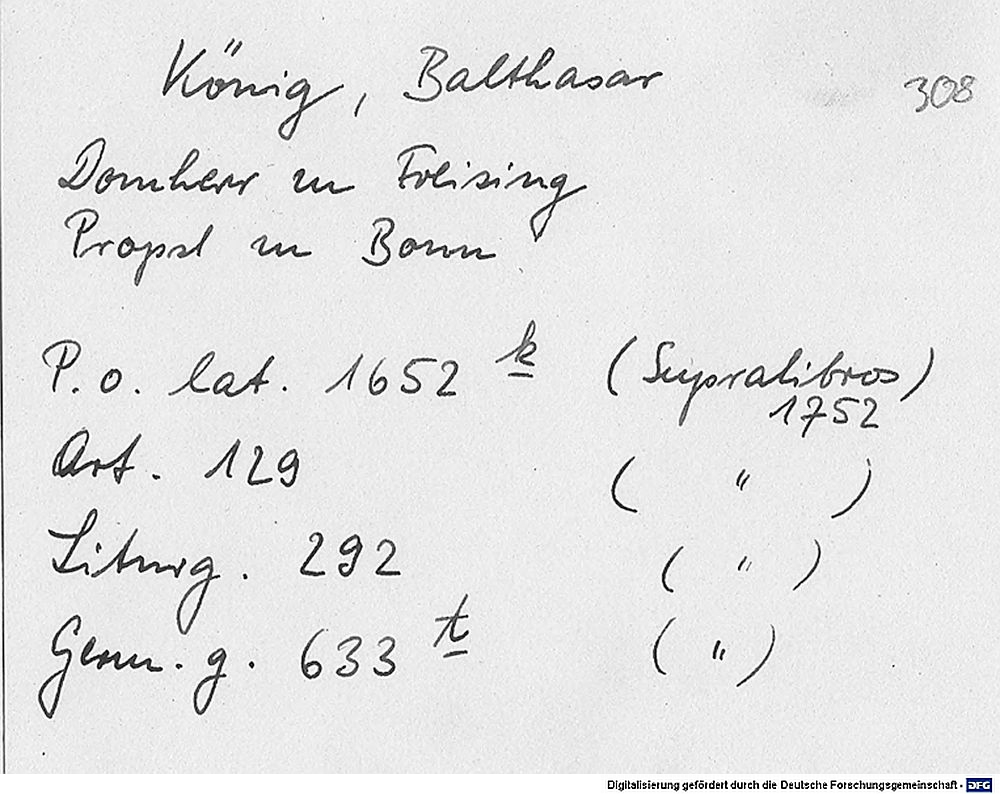 König, Balthasar 308
Domherr in Freising
Propst in Bonn
P. o. lat. 1652 k (Supralibros)
1752
Art. 129 ( " )
Liturg. 292 ( " )
Germ. g. 633 t ( " )
Digitalisierung gefördert durch die Deutsche Forschungsgemeinschaft - DFG